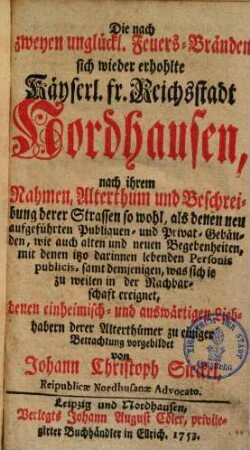 Die nach
zweyen unglückl. Feuers-Bränden
sich wieder erhohlte
Käyserl. fr. Reichsstadt
Nordhausen,
nach ihrem
Nahmen, Alterthum und Beschrei-
bung derer Strassen so wohl, als denen neu
aufgeführten Publiquen- und Privat-Gebäu-
den, wie auch alten und neuen Begebenheiten,
mit denen itzo darinnen lebenden Personis
publicis, samt demjenigen, was sich je
zu weilen in der Nachbar-
schaft ereignet,
denen einheimisch- und auswärtigen Lieb-
habern derer Alterthümer zu einiger
Betrachtung vorgebildet
von
Johann Christoph
Reipublicæ Nordhusanæ Advocato.
Leipzig und Nordhausen,
Verlegts Johann August Cöler, privile-
girter Buchhändler in Ellrich. 1753.